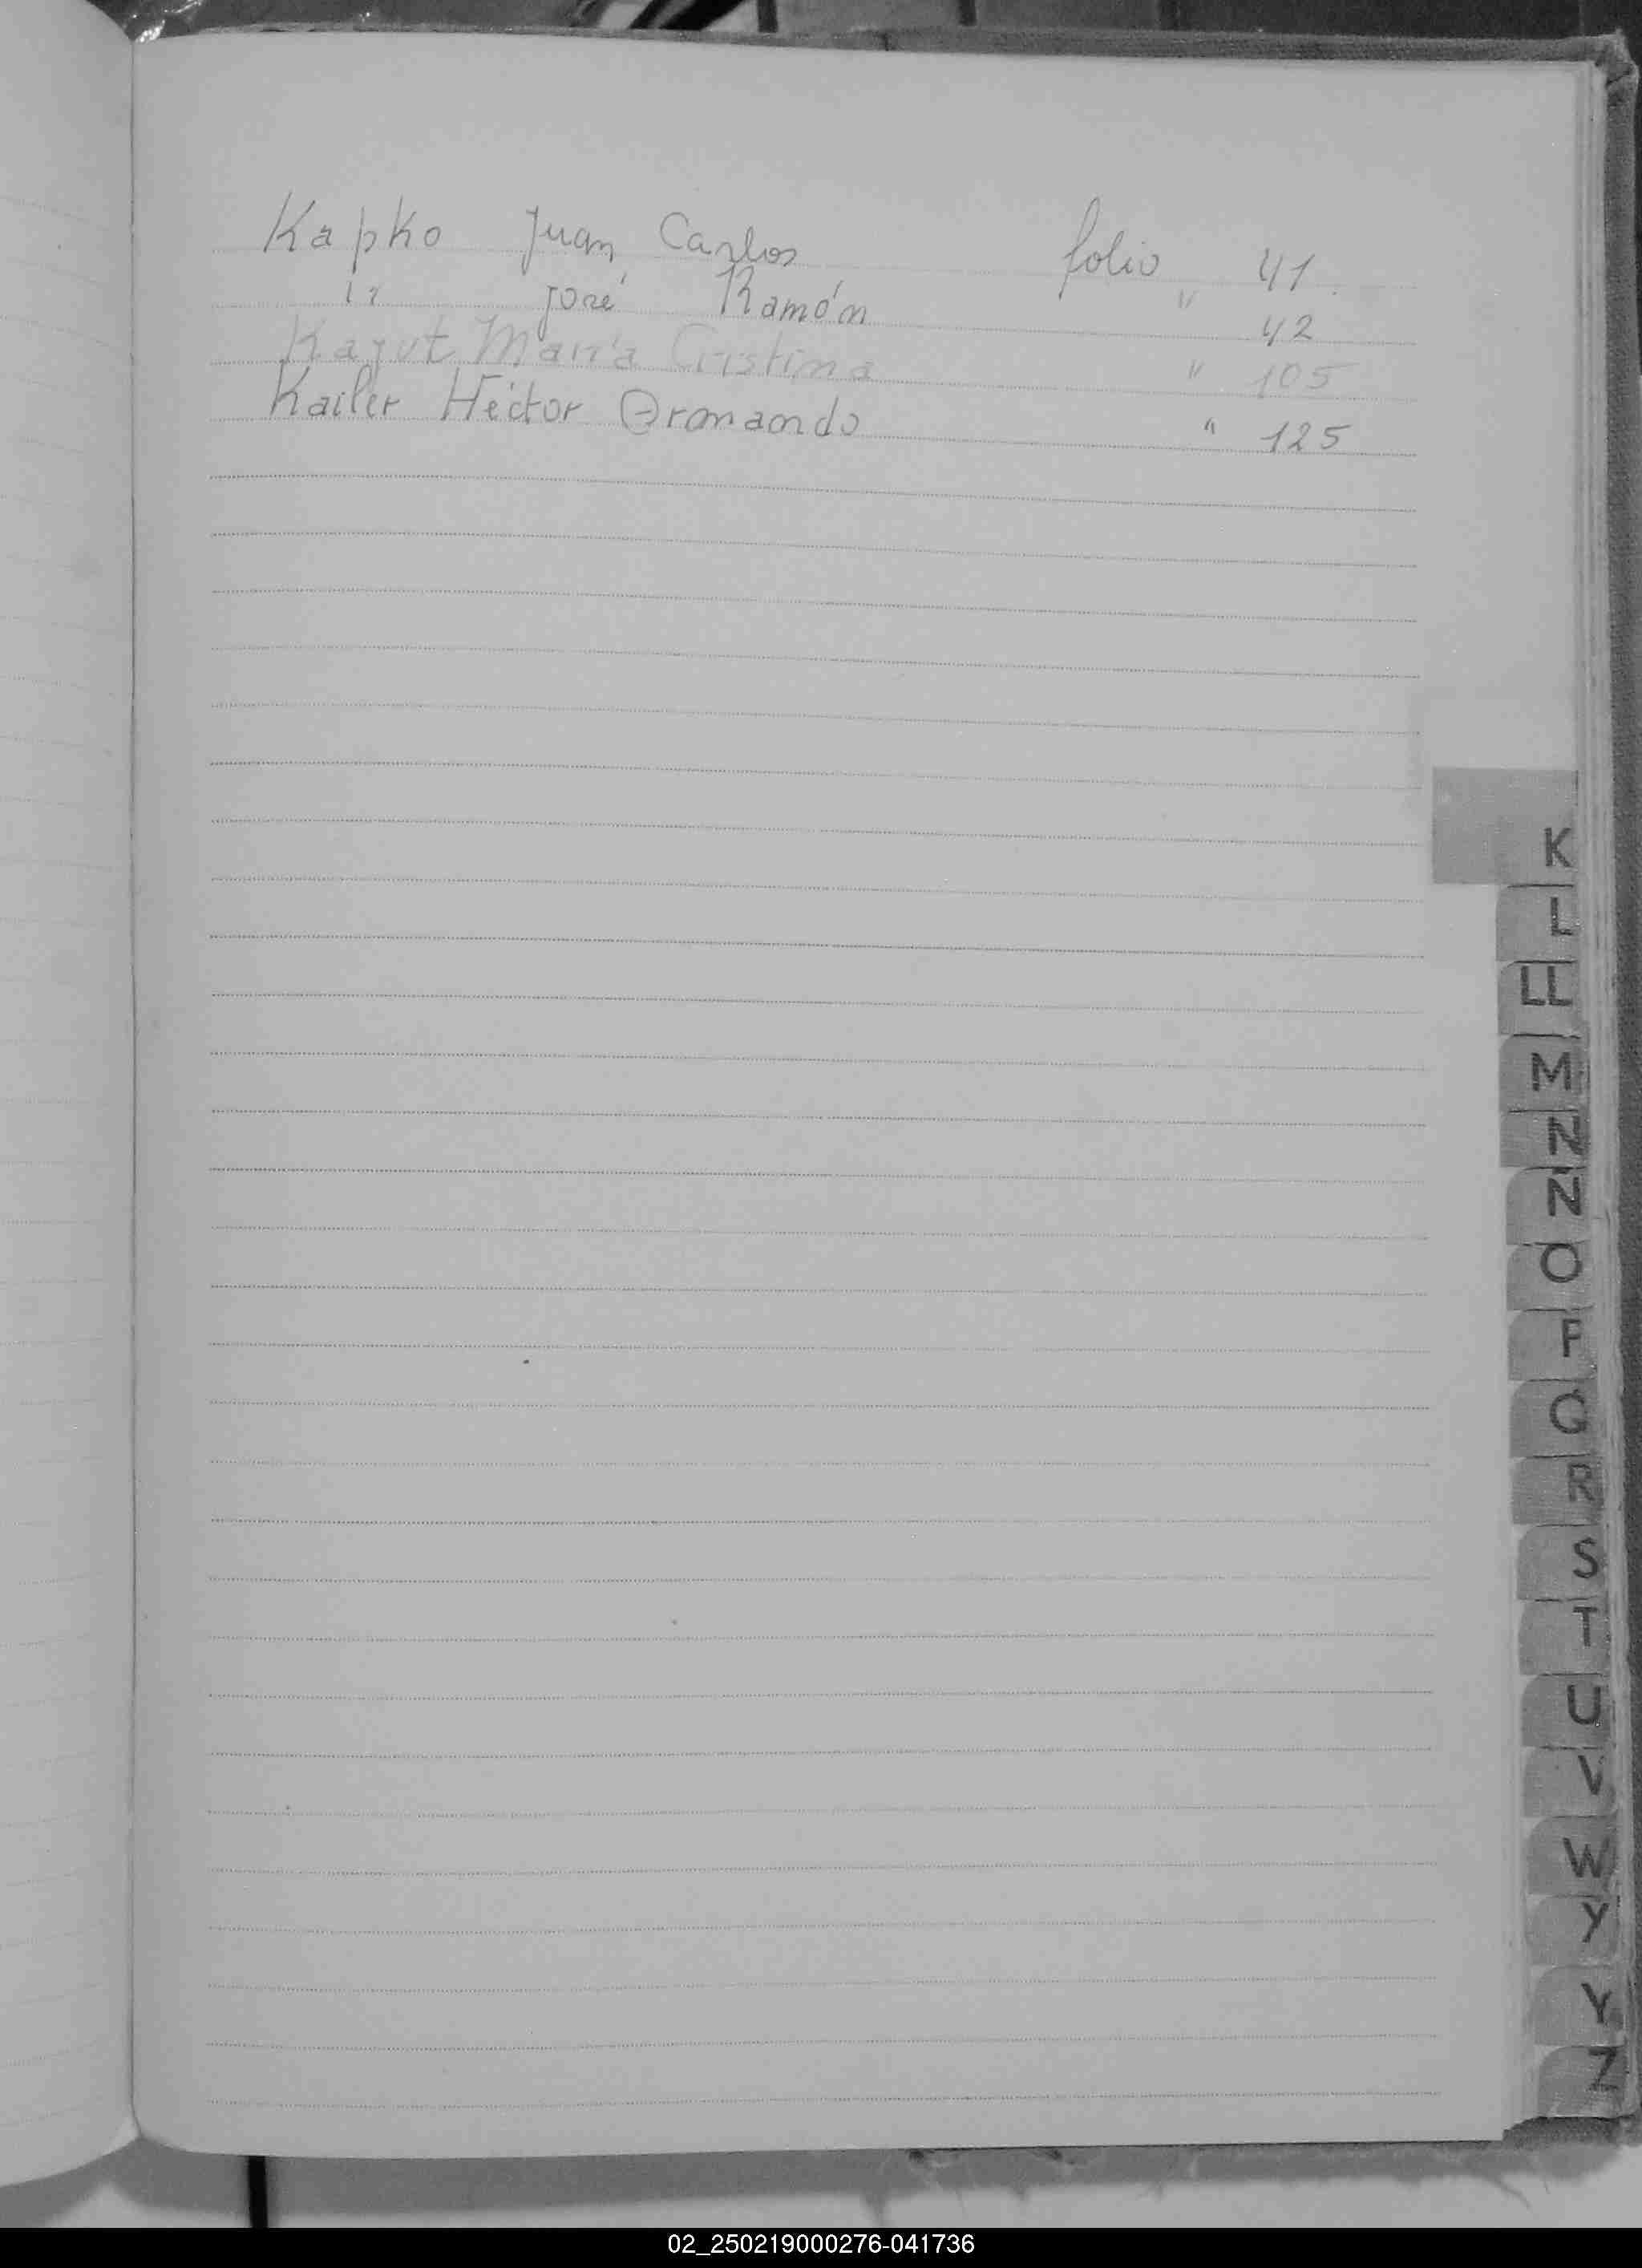 Kapko Juan Carlos folio 41.
" José Ramón " 42
Kayut María Cristina " 105
Kailer Héctor Armando " 125
K
L
LL
M
N
Ñ
O
P
Q
R
S
T
U
V
W
Y
Y
Z
02_250219000276-041736